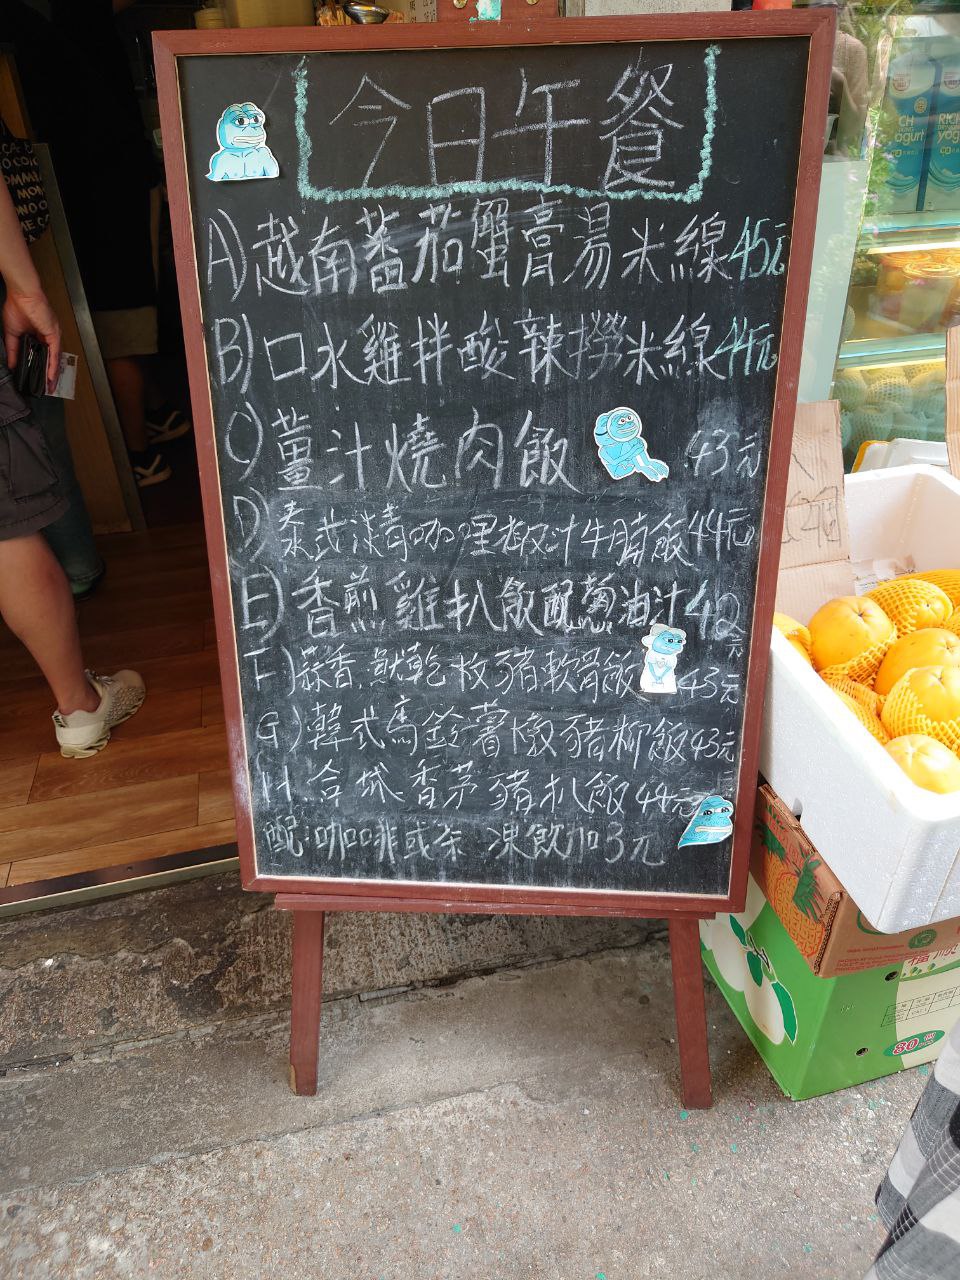 今日午餐
A) 越南蕃茄蟹膏湯米線 45元
B) 口水雞拌酸辣撈米線 44元
C) 薑汁燒肉飯 43元
D) 泰式淡青咖喱椒汁牛腩飯 44元
E) 香煎雞扒飯配蔥油汁 42元
F) 蒜香 乾 豬軟骨飯 43元
G) 韓式馬鈴薯燉豬柳飯 43元
H 香茅豬扒飯 44元
配:咖啡或茶 凍飲加3元
RICH
80